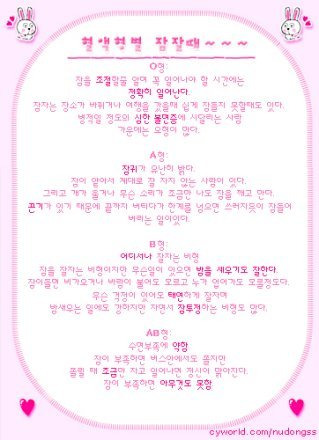 혈액형별 잠잘때~~~
O형:
잠을 조절할줄 알며 꼭 일어나야 할 시간에는
정확히 일어난다.
잠자는 장소가 바뀌거나 여행을 갔을때 쉽게 잠들지 못할때도 있다.
병적일 정도의 심한 불면증에 시달리는 사람
가운데는 O형이 많다.
A형:
잠귀가 유난히 밝다.
잠이 얕아서 제대로 잠 자지 않는 사람이 있다.
그리고 개가 울거나 무슨 소리가 조금만 나도 잠을 깨고 만다.
끈기가 있기 때문에 끝까지 버티다가 한계를 넘으면 쓰러지듯이 잠들어
버리는 일이있다.
B형:
어디서나 잘자는 B형
잠을 잘자는 B형이지만 무슨일이 있으면 밤을 새우기도 잘한다.
잠이들면 비가오거나 바람이 불어도 모르고 누가 업어가도 모를정도다.
무슨 걱정이 있어도 태연하게 잠자며
밤새우는 일에도 강하지만 자면서 잠투정하는 B형도 많다.
AB형:
수면부족에 약함
잠이 부족하면 버스안에서도 졸지만
졸릴 때 조금만 자고 일어나면 정신이 맑아진다.
잠이 부족하면 아무것도 못함
cyworld.com/nudongss